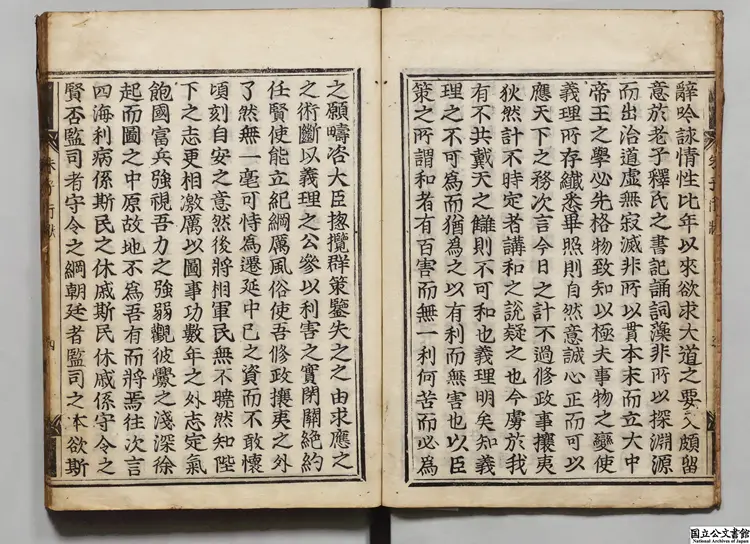 辭吟詠情性比年以來欲求大道之要又頗留
意於老子釋氏之書記誦詞藻非所以探淵源
而出治道虛無寂滅非所以貫本末而立大中
帝王之學必先格物致知以極夫事物之變使
義理所存纖悉畢照則自然意誠心正而可以
應天下之務次言今日之計不過修政事攘夷
狄然計不時定者講和之說疑之也今虜於我
有不共戴天之讎則不可和也義理明矣知義
理之不可爲而猶爲之以有利而無害也以臣
策之所謂和者有百害而無一利何苦而必爲
之願疇咨大臣揔攬群策鑒失之之由求應之
之術斷以義理之公參以利害之實閉關絕約
任賢使能立紀綱厲風俗使吾修政攘夷之外
了然無一毫可恃爲遷延中已之資而不敢懷
頃刻自安之意然後將相軍民無不曉然知陛
下之志更相激厲以圖事功數年之外志定氣
飽國富兵強視吾力之強弱觀彼釁之淺深徐
起而圖之中原故地不爲吾有而將焉往次言
四海利病係斯民之休戚斯民休戚係守令之
賢否監司者守令之綱朝廷者監司之本欲斯
朱子行狀
四
国立公文書館
National Archives of Japan